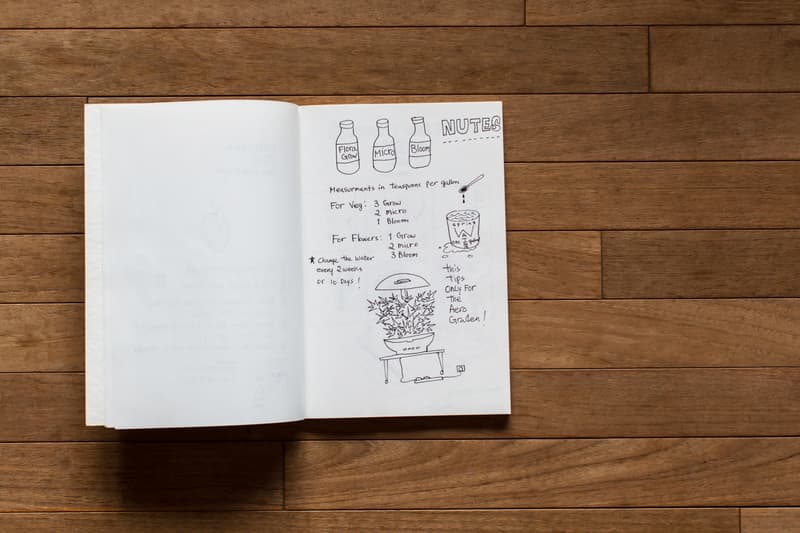 NUTES
Flora
Grow
Micro
Bloom
Measurments in Teaspoons per gallon
For Veg: 3 Grow
2 micro
1 Bloom
For Flowers: 1 Grow
2 micro
3 Bloom
★ Change the Water
every 2 weeks
or 10 Days!
this
Tips
Only For
the
Aero
Garden!